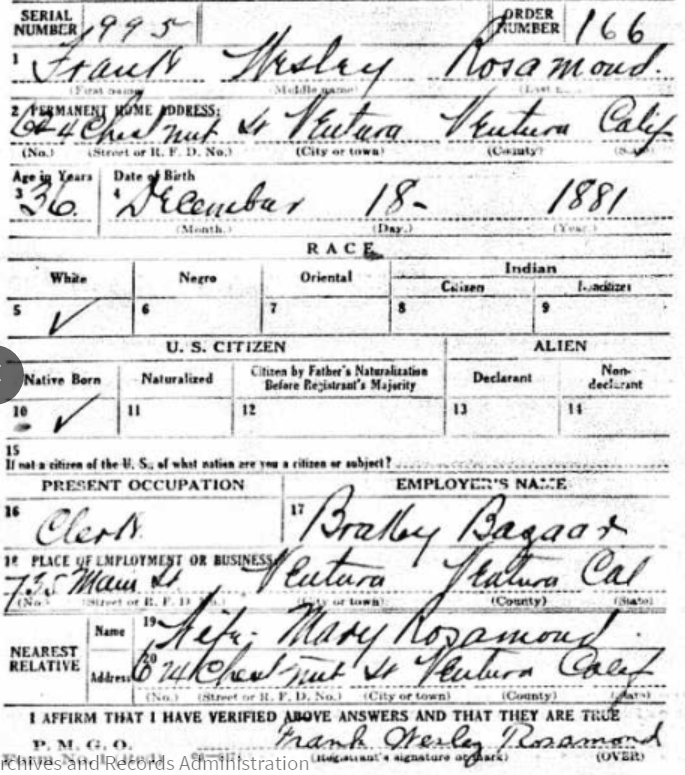 SERIAL NUMBER 1995 ORDER NUMBER 166
1 Frank Wesley Rosamond.
(First name) (Middle name)
2 PERMANENT HOME ADDRESS:
624 Chestnut St Ventura Ventura Calif
(No.) (Street or R. F. D. No.) (City or town) (County) (State)
Age in Years Date of Birth
3 36. 4 December 18- 1881
(Month.) (Day.) (Year.)
RACE
White Negro Oriental Indian
Citizen Noncitizen
5 ✓ 6 7 8 9
U. S. CITIZEN ALIEN
Native Born Naturalized Citizen by Father's Naturalization Before Registrant's Majority Declarant Non-declarant
10 ✓ 11 12 13 14
15
If not a citizen of the U. S., of what nation are you a citizen or subject?
PRESENT OCCUPATION EMPLOYER'S NAME
16 Clerk. 17 Brakey Bazaar
18 PLACE OF EMPLOYMENT OR BUSINESS
735 Main St Ventura Ventura Cal
(No.) (Street or R. F. D. No.) (City or town) (County) (State)
NEAREST RELATIVE
Name 19 Wife- Mary Rosamond
Address 20 624 Chestnut St Ventura Calif
(No.) (Street or R. F. D. No.) (City or town) (County) (State)
I AFFIRM THAT I HAVE VERIFIED ABOVE ANSWERS AND THAT THEY ARE TRUE
P. M. G. O. Frank Wesley Rosamond
Form No. 1 (Red) (Registrant's signature or mark) (OVER)
rchives and Records Administration